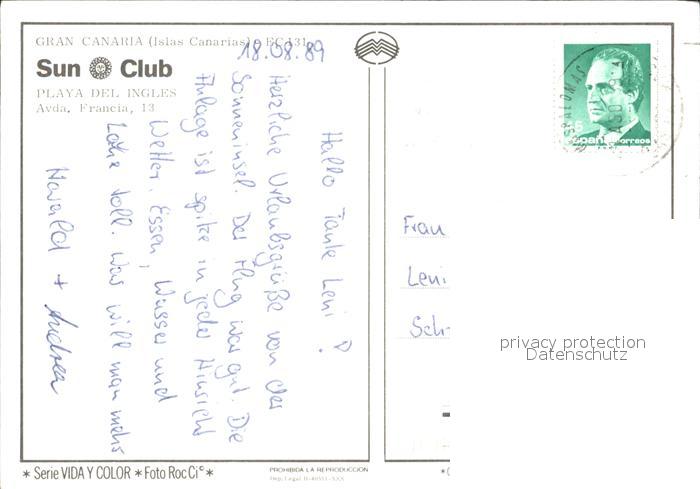 GRAN CANARIA (Islas Canarias) EC 131
Sun Club
PLAYA DEL INGLES
Avda. Francia, 13
18.08.89
Hallo Tante Leni!
Herzliche Urlaubsgrüße von der
Sonneninsel. Der Flug war gut. Die
Anlage ist spitze in jeder Hinsicht
Wetter, Essen, Wasser und
Lage toll. Was will man mehr
Harald + Andrea
Frau
Leni
Sch
privacy protection
Datenschutz
España correos
MASPALOMAS
* Serie VIDA Y COLOR * Foto Roc Ci© *
PROHIBIDA LA REPRODUCCION